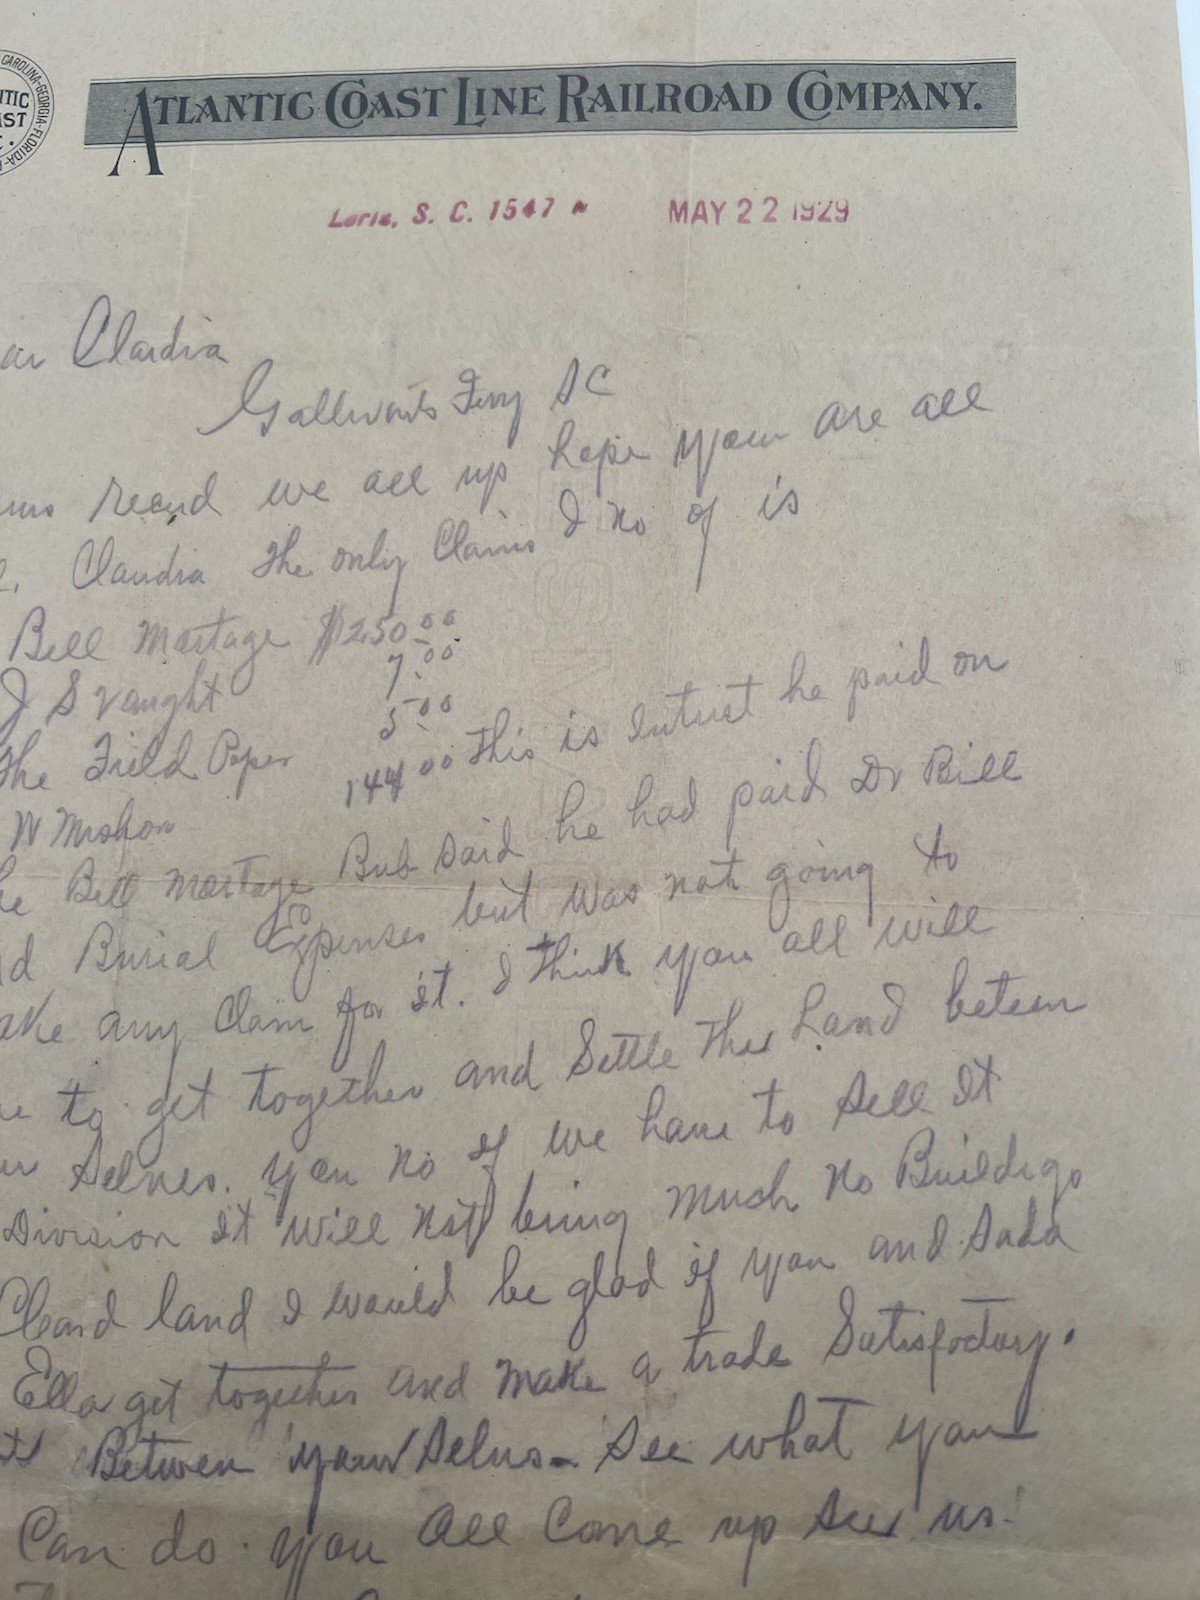 CAROLINA-GEORGIA-FLORIDA-
ATLANTIC COAST LINE RAILROAD COMPANY.
Loris, S. C. 1547
MAY 22 1929
Claudia
Gallivants Fery S C
we all up hope you are all
Claudia the only Claims I no of is
Bell Mortage $250.00
J S Vaught 7.00
The Field Paper 5.00
W 144.00 This is intrust he paid on
Bell Mortage But said he had paid Dr Bill
Burial Expenses but was not going to
any Claim for it. I think you all will
to get together and Settle The Land beteen
Selves. you no if we have to sell It
Division it will not bring much no Buildigs
Cleard land I would be glad if you and Sada
Ella get together and make a trade Satisfactury.
Betwen your Selves. See what you
Can do. you all Come up See us.